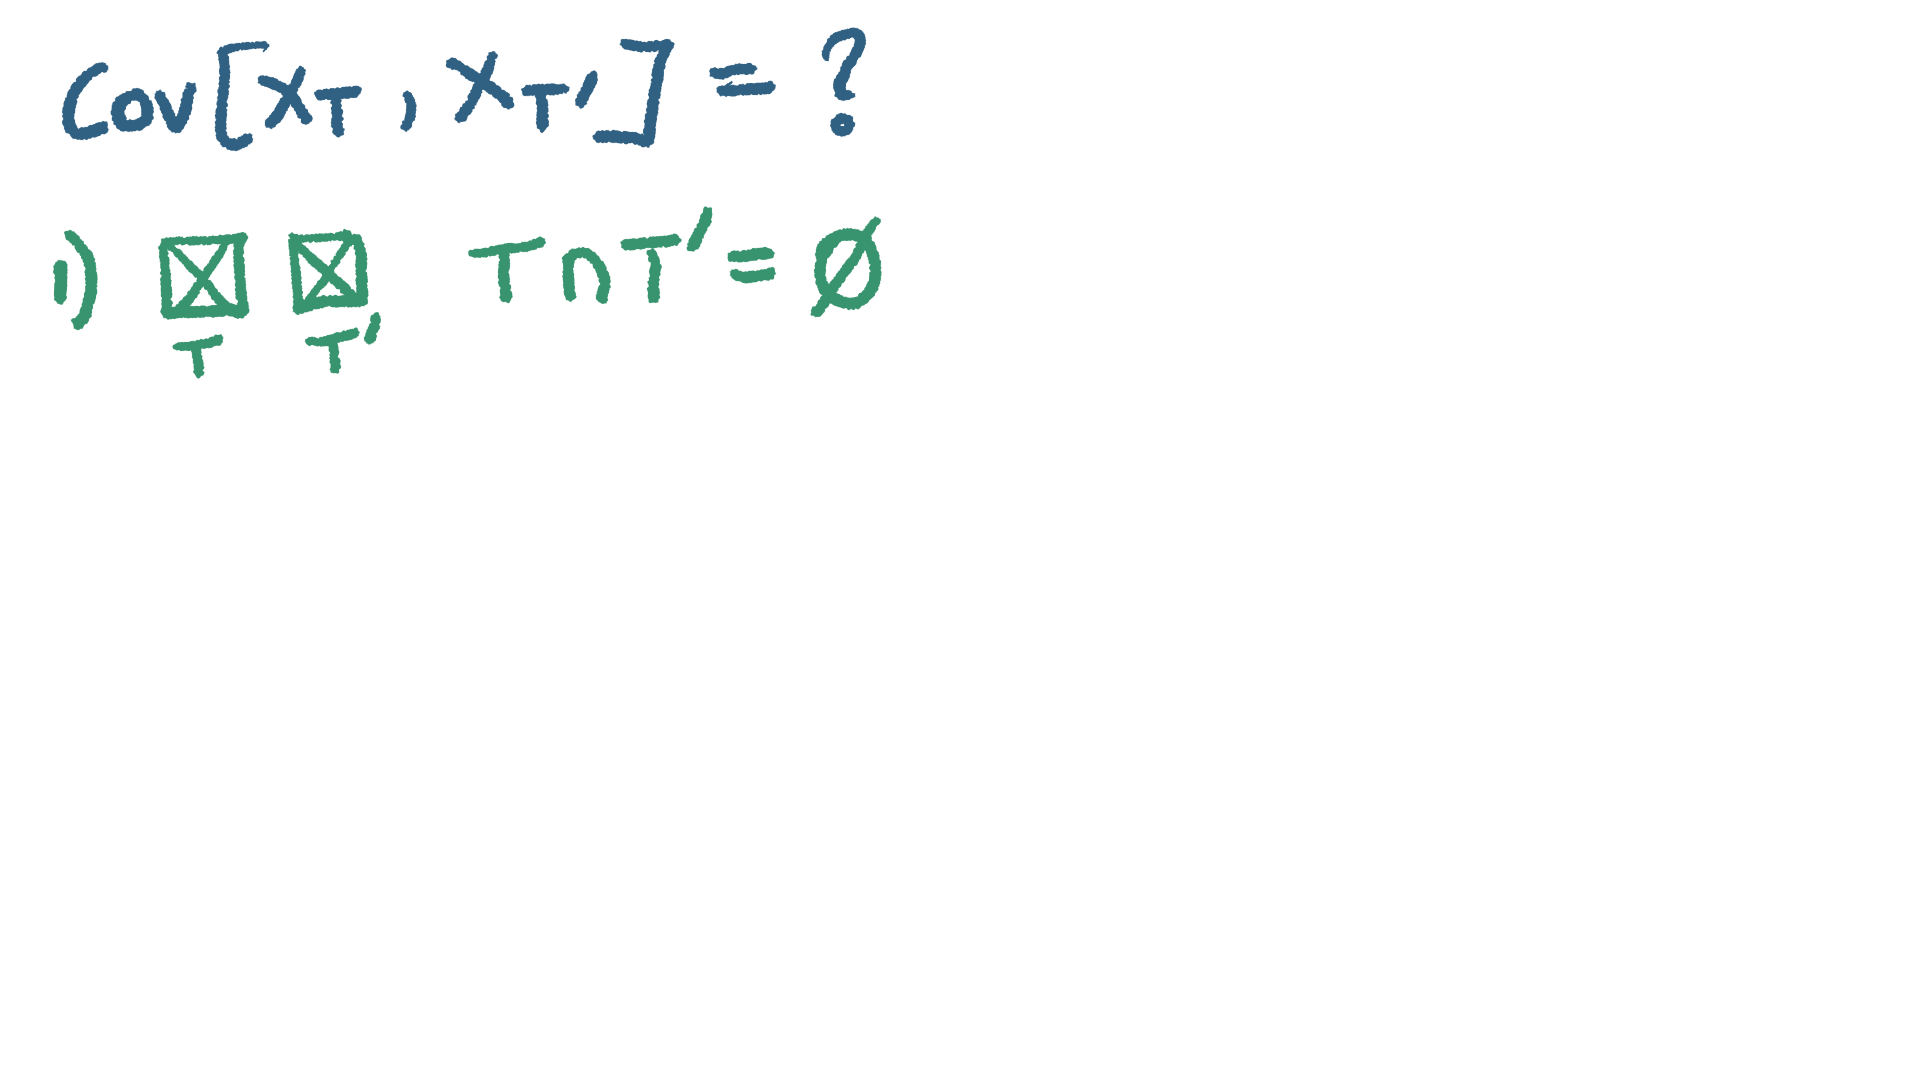 Cov[X_T, X_T'] = ?
1) T ∩ T' = ∅
T T'